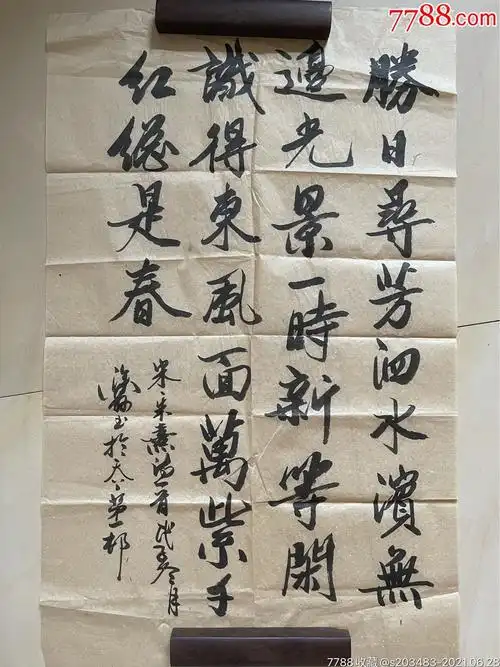 7788.com
勝日尋芳泗水濱無
邊光景一時新等閑
識得東風面萬紫千
红總是春
宋朱熹詩一首
7788收藏@s203483-2021.06.28